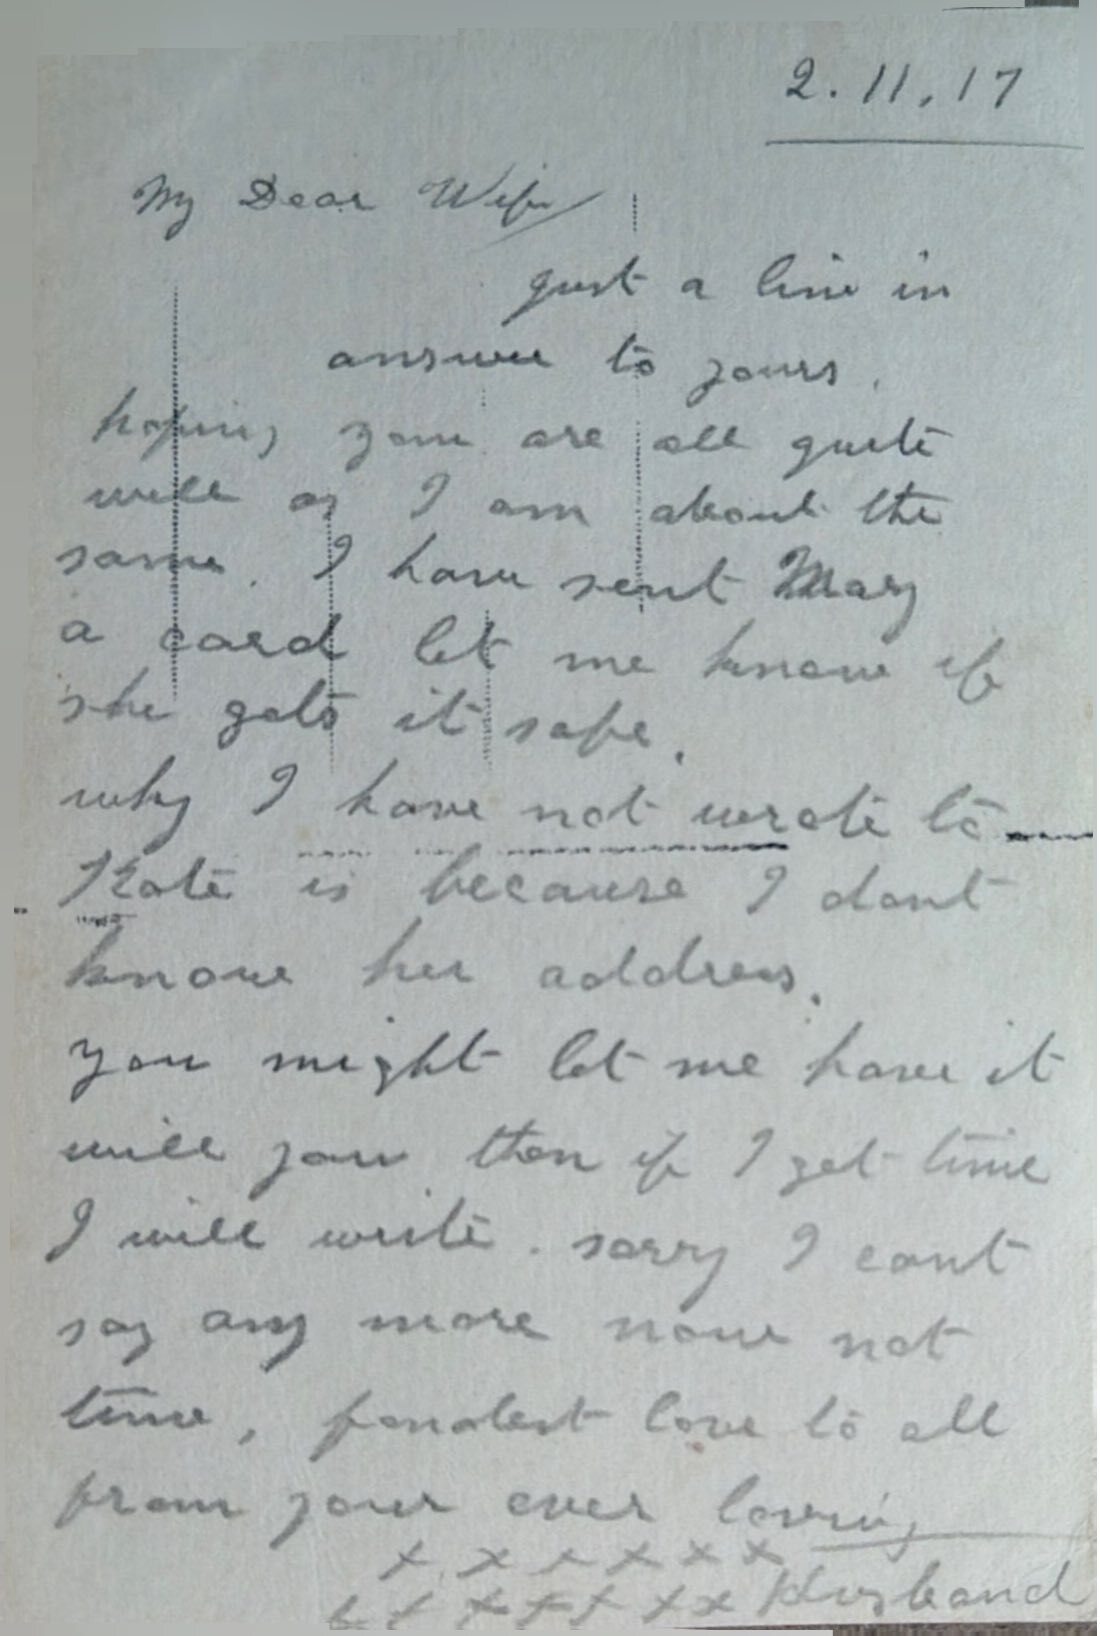 2.11.17
My Dear Wife
just a line in
answer to yours.
hoping you are all quite
well as I am about the
same. I have sent Mary
a card let me know if
she gets it safe.
why I have not wrote to
Kate is because I dont
know her address.
you might let me have it
will you then if I get time
I will write. sorry I cant
say any more now not
time, fondest love to all
from your ever loving
x x x x x x
x x x x x x x Husband